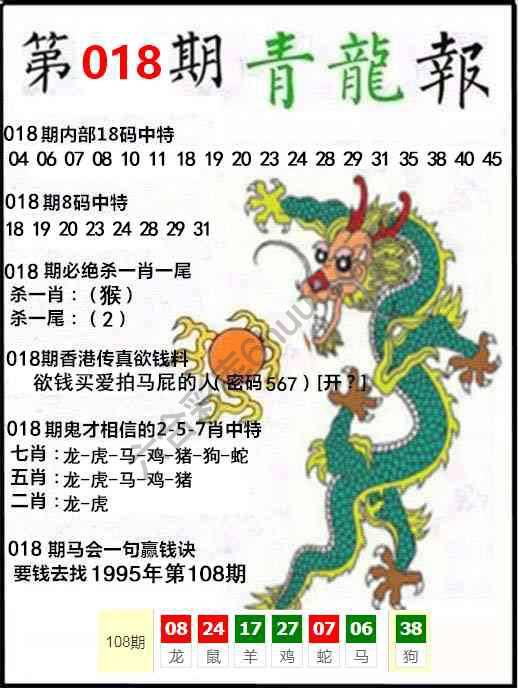 第018期青龍報
018期内部18码中特
04 06 07 08 10 11 18 19 20 23 24 28 29 31 35 38 40 45
018期8码中特
18 19 20 23 24 28 29 31
018 期必绝杀一肖一尾
杀一肖：（猴）
杀一尾：（2）
018期香港传真欲钱料
欲钱买爱拍马屁的人(密码567）[开？]
018期鬼才相信的2-5-7肖中特
七肖：龙-虎-马-鸡-猪-狗-蛇
五肖：龙-虎-马-鸡-猪
二肖：龙-虎
018 期马会一句赢钱诀
要钱去找1995年第108期
108期 08 24 17 27 07 06 38
龙 鼠 羊 鸡 蛇 马 狗